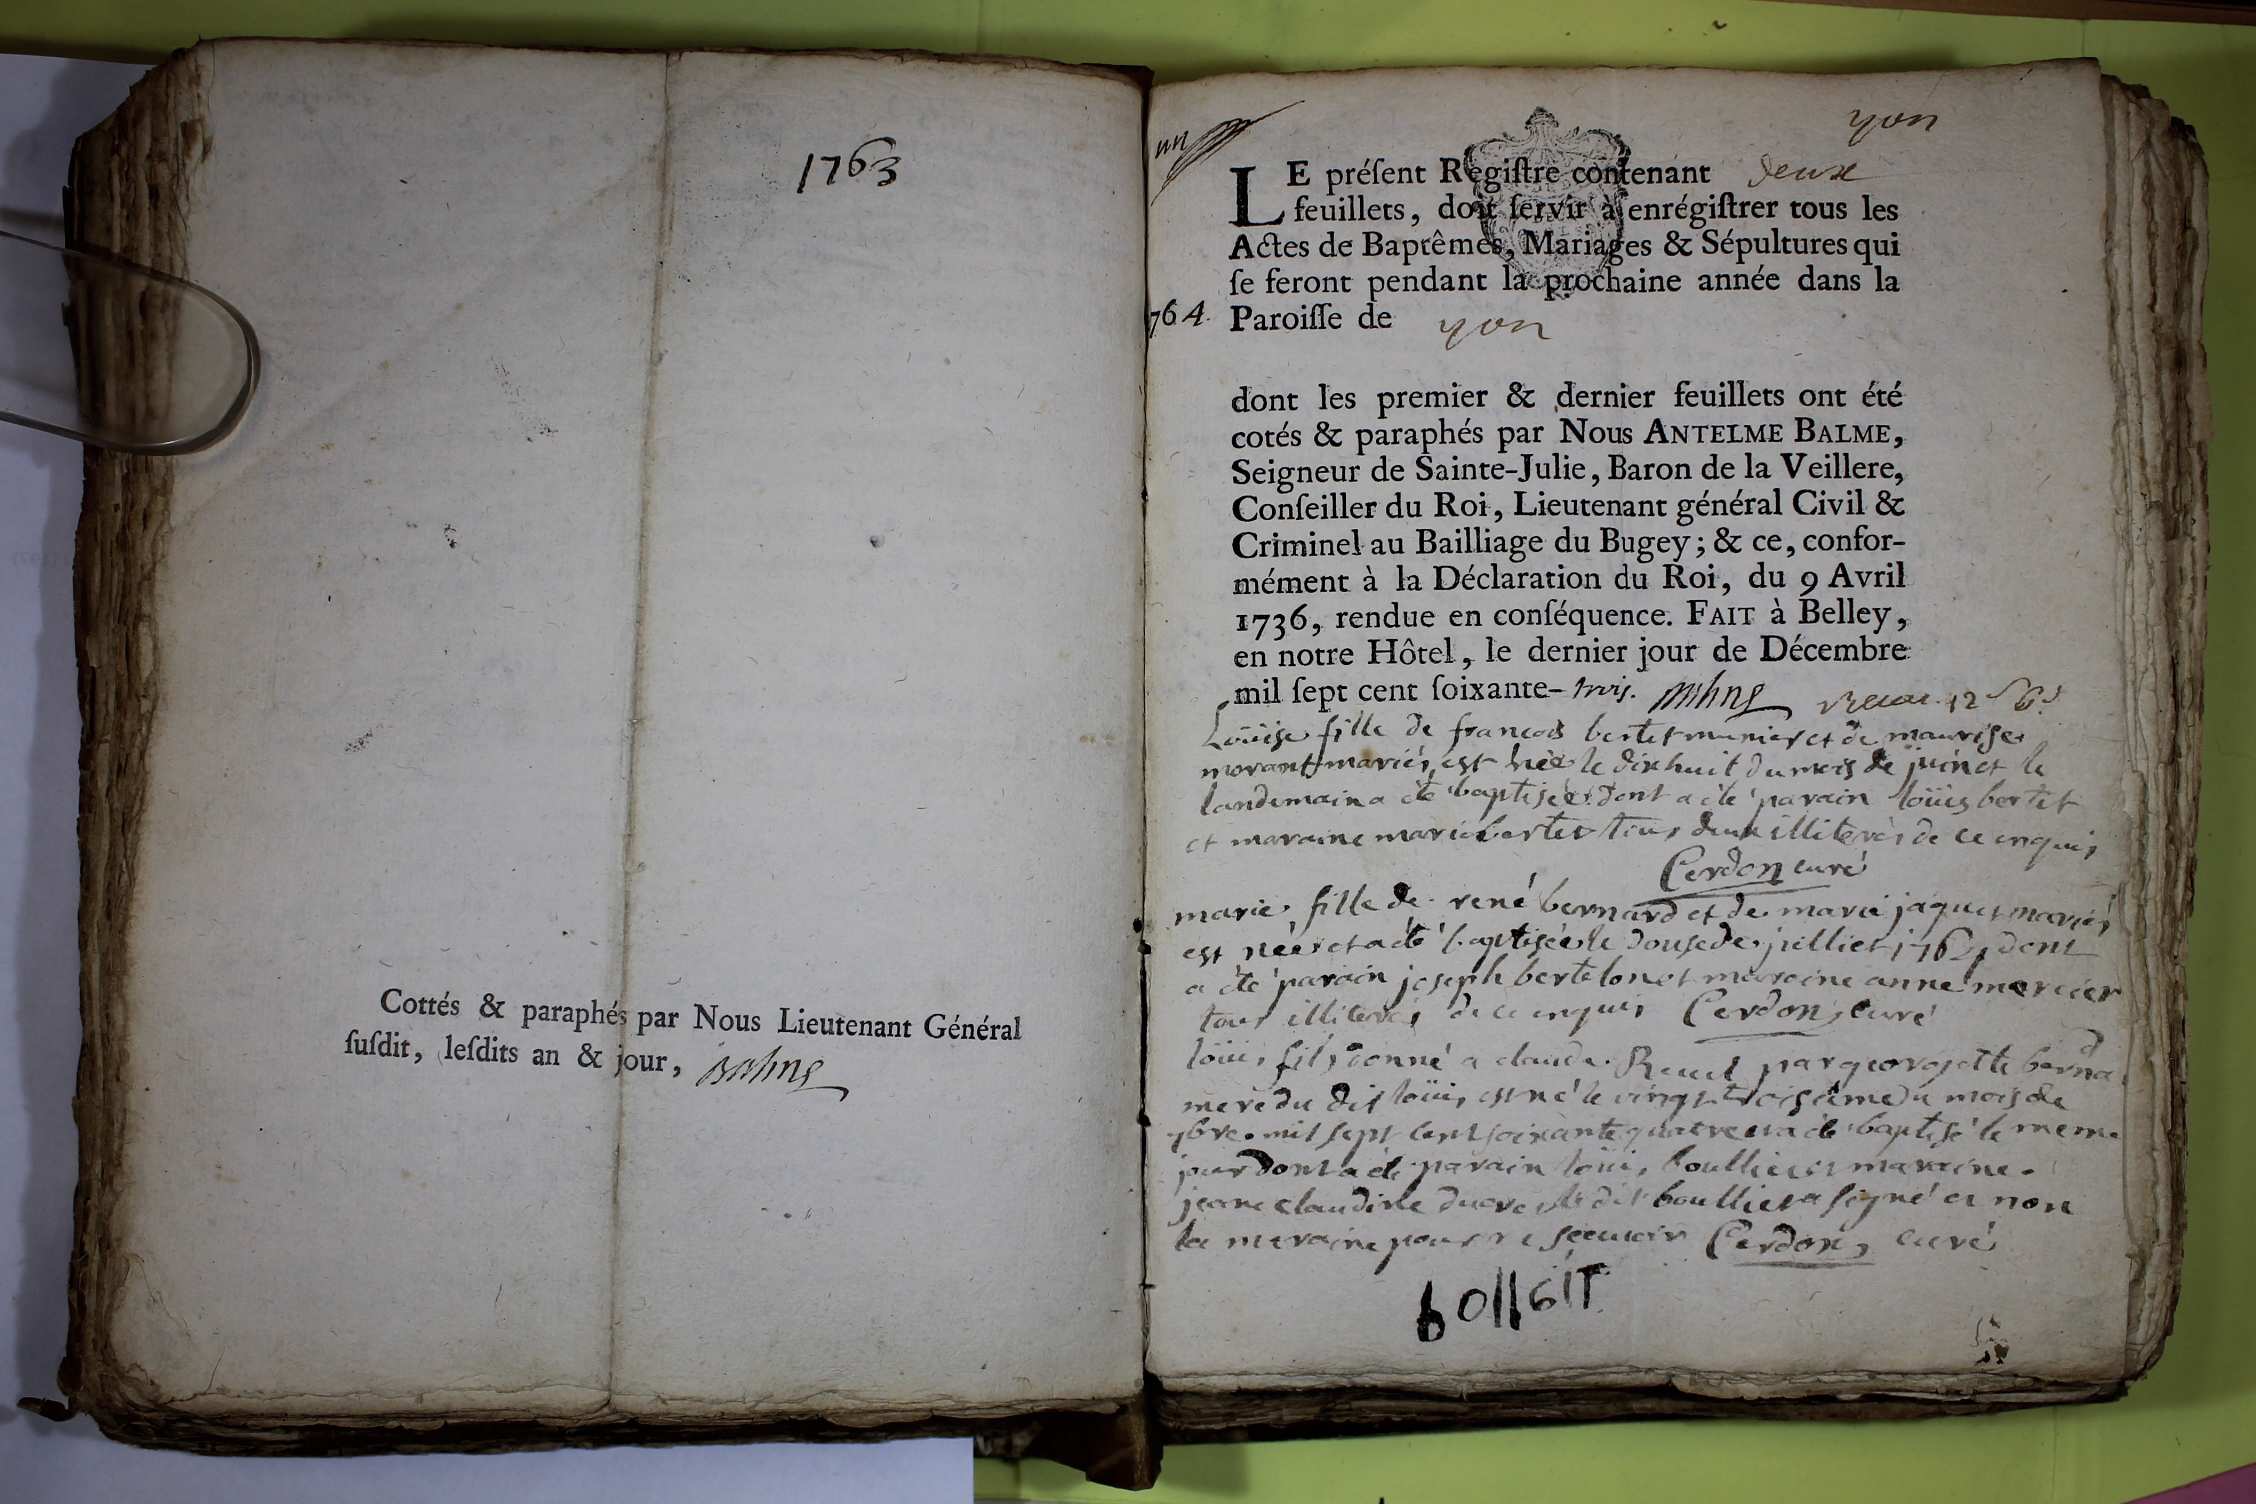 1763
Cottés & paraphés par Nous Lieutenant Général
ſuſdit, leſdits an & jour, Balme
un
yon
LE préſent Regiſtre contenant deux
feuillets, doit ſervir à enrégiſtrer tous les
Actes de Baptêmes, Mariages & Sépultures qui
ſe feront pendant la prochaine année dans la
764. Paroiſſe de yon
dont les premier & dernier feuillets ont été
cotés & paraphés par Nous ANTELME BALME,
Seigneur de Sainte-Julie, Baron de la Veillere,
Conſeiller du Roi, Lieutenant général Civil &
Criminel au Bailliage du Bugey; & ce, confor-
mément à la Déclaration du Roi, du 9 Avril
1736, rendue en conſéquence. FAIT à Belley,
en notre Hôtel, le dernier jour de Décembre
mil ſept cent ſoixante-trois. Balme
Loüise fille de francois bertet munier et de maurise
morant mariés est née le dix huit du mois de juin et le
landemain a été baptisée dont a été parain loüis bertet
et maraine marie bertet tous deux illiterès de ce enquis
Cerdon curé
marie fille de rené bernard et de marie jaquet mariés
est née et a été baptisée le douse de julliet 1764 dont
a été parain joseph bertelon et maraine anne mercier
tous illiterés de ce enquis Cerdon, curé
loüis fils donné a claude Revel par georgette bernard
mere du dit loüis est né le vingt troisieme du mois de
9bre mil sept cent soixante quatre et a été baptisé le meme
jour dont a été parain loüis boullier et maraine
jeane claudine le dit boullier a signé et non
la maraine pour ne scauoir Cerdon, curé
bollGIT